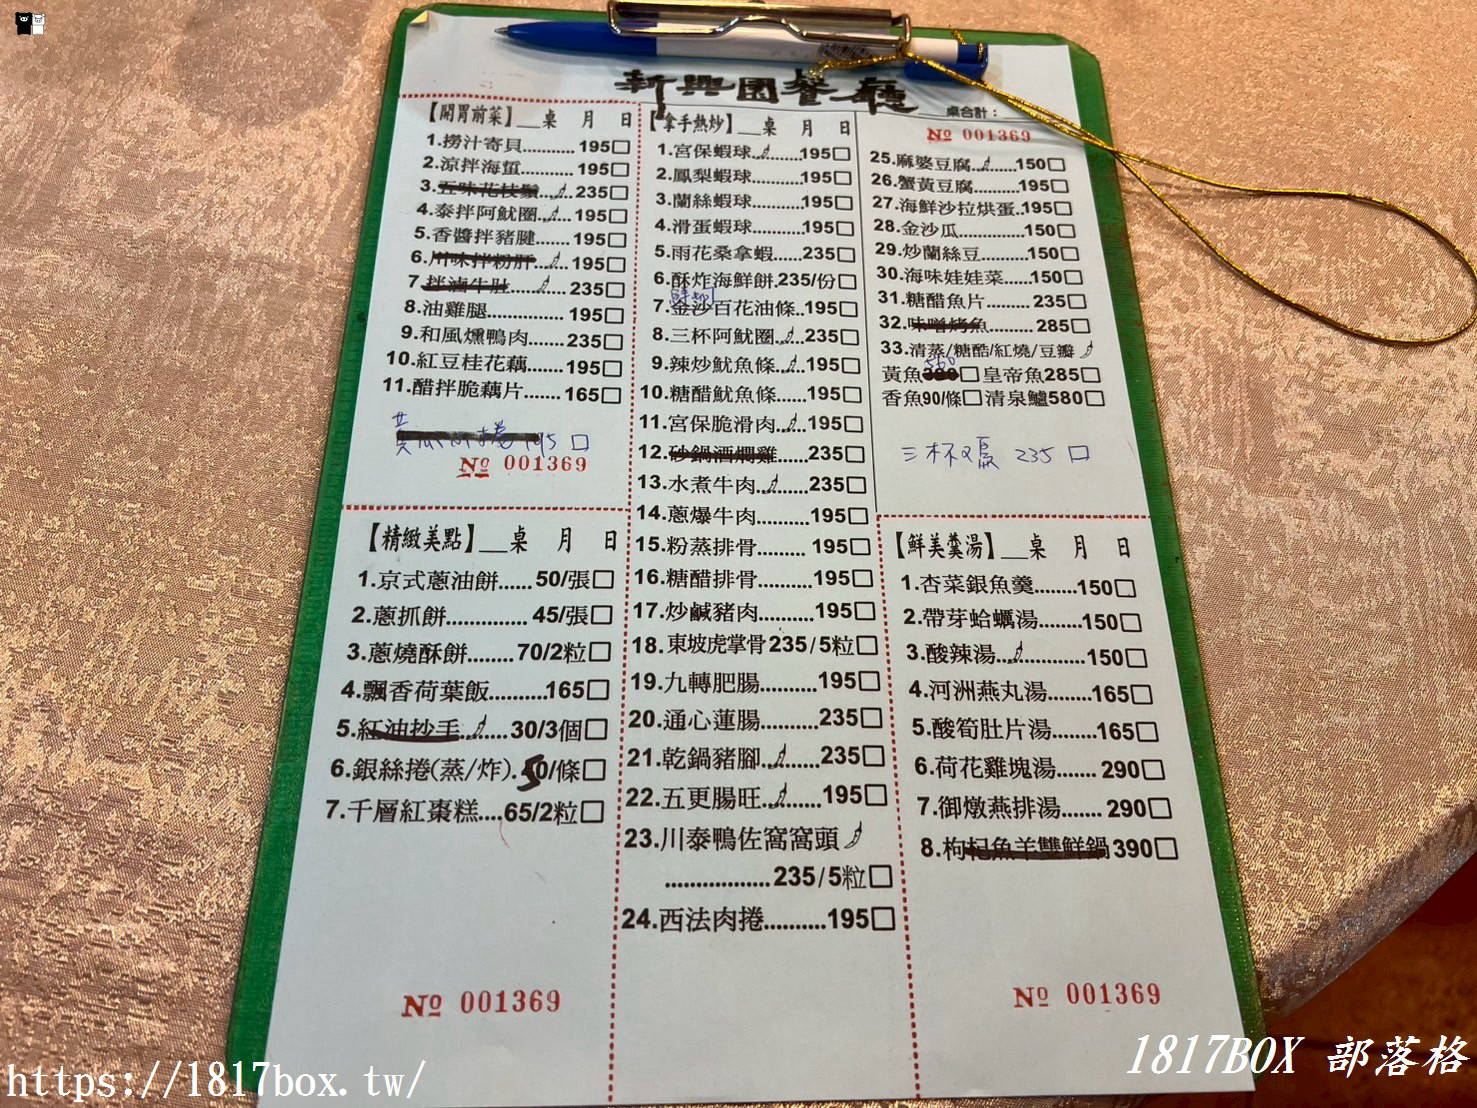 新興園餐廳
桌合計：
【開胃前菜】__桌 月 日
1.撈汁寄貝...........195□
2.涼拌海蜇...........195□
3.五味花枝鬚.....235□
4.泰拌阿魷圈.....195□
5.香醬拌豬腱.......195□
6.川味拌粉肝.....195□
7.拌滷牛肚.......235□
8.油雞腿................195□
9.和風燻鴨肉.......235□
10.紅豆桂花藕.......195□
11.醋拌脆藕片.......165□
195 □
№ 001369
【拿手熱炒】__桌 月 日
1.宮保蝦球..........195□
2.鳳梨蝦球..........195□
3.蘭絲蝦球..........195□
4.滑蛋蝦球..........195□
5.雨花桑拿蝦......235□
6.酥炸海鮮餅.235/份□
7.金沙百花油條..195□
8.三杯阿魷圈.....235□
9.辣炒魷魚條.....195□
10.糖醋魷魚條......195□
11.宮保脆滑肉.....195□
12.砂鍋酒燜雞......235□
13.水煮牛肉.........235□
14.蔥爆牛肉..........195□
15.粉蒸排骨......... 195□
16.糖醋排骨..........195□
17.炒鹹豬肉..........195□
18.東坡虎掌骨235/5粒□
19.九轉肥腸..........195□
20.通心蓮腸..........235□
21.乾鍋豬腳.........235□
22.五更腸旺.........195□
23.川泰鴨佐窩窩頭
..................235/5粒□
24.西法肉捲..........195□
№ 001369
25.麻婆豆腐.......150□
26.蟹黃豆腐..........195□
27.海鮮沙拉烘蛋..195□
28.金沙瓜...............150□
29.炒蘭絲豆...........150□
30.海味娃娃菜......150□
31.糖醋魚片......... 235□
32.味噌烤魚......... 285□
33.清蒸/糖酷/紅燒/豆瓣
560
黃魚380□ 皇帝魚285□
香魚90/條□ 清泉鱸580□
235 □
【精緻美點】__桌 月 日
1.京式蔥油餅...... 50/張□
2.蔥抓餅............... 45/張□
3.蔥燒酥餅........70/2粒□
4.飄香荷葉飯..........165□
5.紅油抄手......30/3個□
6.銀絲捲(蒸/炸).50/條□
7.千層紅棗糕....65/2粒□
№ 001369
【鮮美羹湯】__桌 月 日
1.杏菜銀魚羹........150□
2.帶芽蛤蠣湯........150□
3.酸辣湯...............150□
4.河洲燕丸湯........165□
5.酸筍肚片湯........165□
6.荷花雞塊湯....... 290□
7.御燉燕排湯....... 290□
8.枸杞魚羊雙鮮鍋390□
№ 001369
https://1817box.tw/
1817BOX 部落格